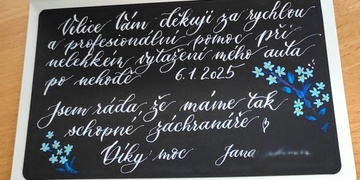 Velice Vám děkuji za rychlou
a profesionální pomoc při
nelehkém vytažení mého auta
po nehodě 6.1.2025
Jsem ráda, že máme tak
schopné záchranáře
Díky moc Jana